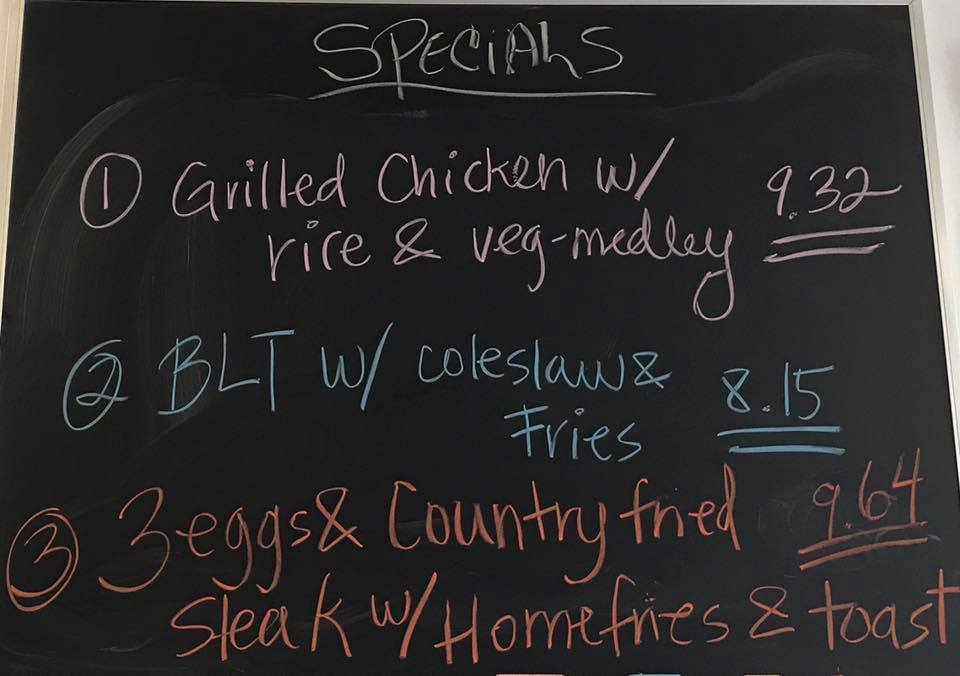 SPECIALS
① Grilled Chicken w/ 9.32
rice & veg-medley
② BLT w/ coleslaw & 8.15
Fries
③ 3 eggs & Country fried 9.64
Steak w/ Homefries & toast